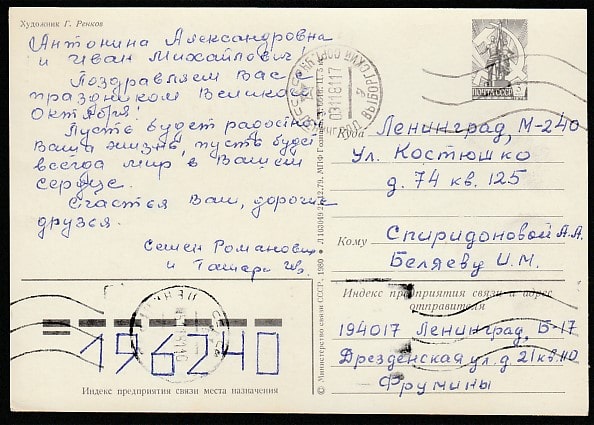 Художник Г. Ренков
Антонина Александровна
и Иван Михайлович!
Поздравляем Вас с
праздником Великого
Октября!
Пусть будет радостной
Ваша жизнь, пусть будет
всегда мир в Вашем
сердце.
Счастья Вам, дорогие
друзья.
Семен Романович
и Тамара
ПОЧТА СССР
03118117
ВЫБОРГСКИЙ
Куда Ленинград, М-240
Ул. Костюшко
д. 74 кв. 125
Кому Спиридоновой А.А.
Беляеву И.М.
Индекс предприятия связи и адрес
отправителя
194017 Ленинград, Б-17
Дрезденская ул. д 21 кв. 110
Фрумины
196240
Индекс предприятия связи места назначения
© Министерство связи СССР, 1980